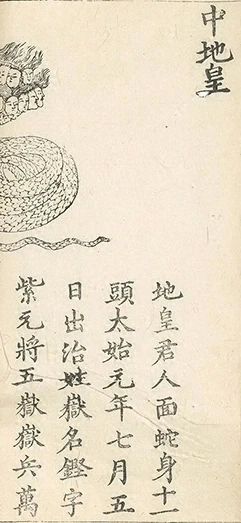 中地皇
地皇君人面蛇身十一
頭太始元年七月五
日出治姓嶽名鏗字
紫元將五嶽嶽兵萬